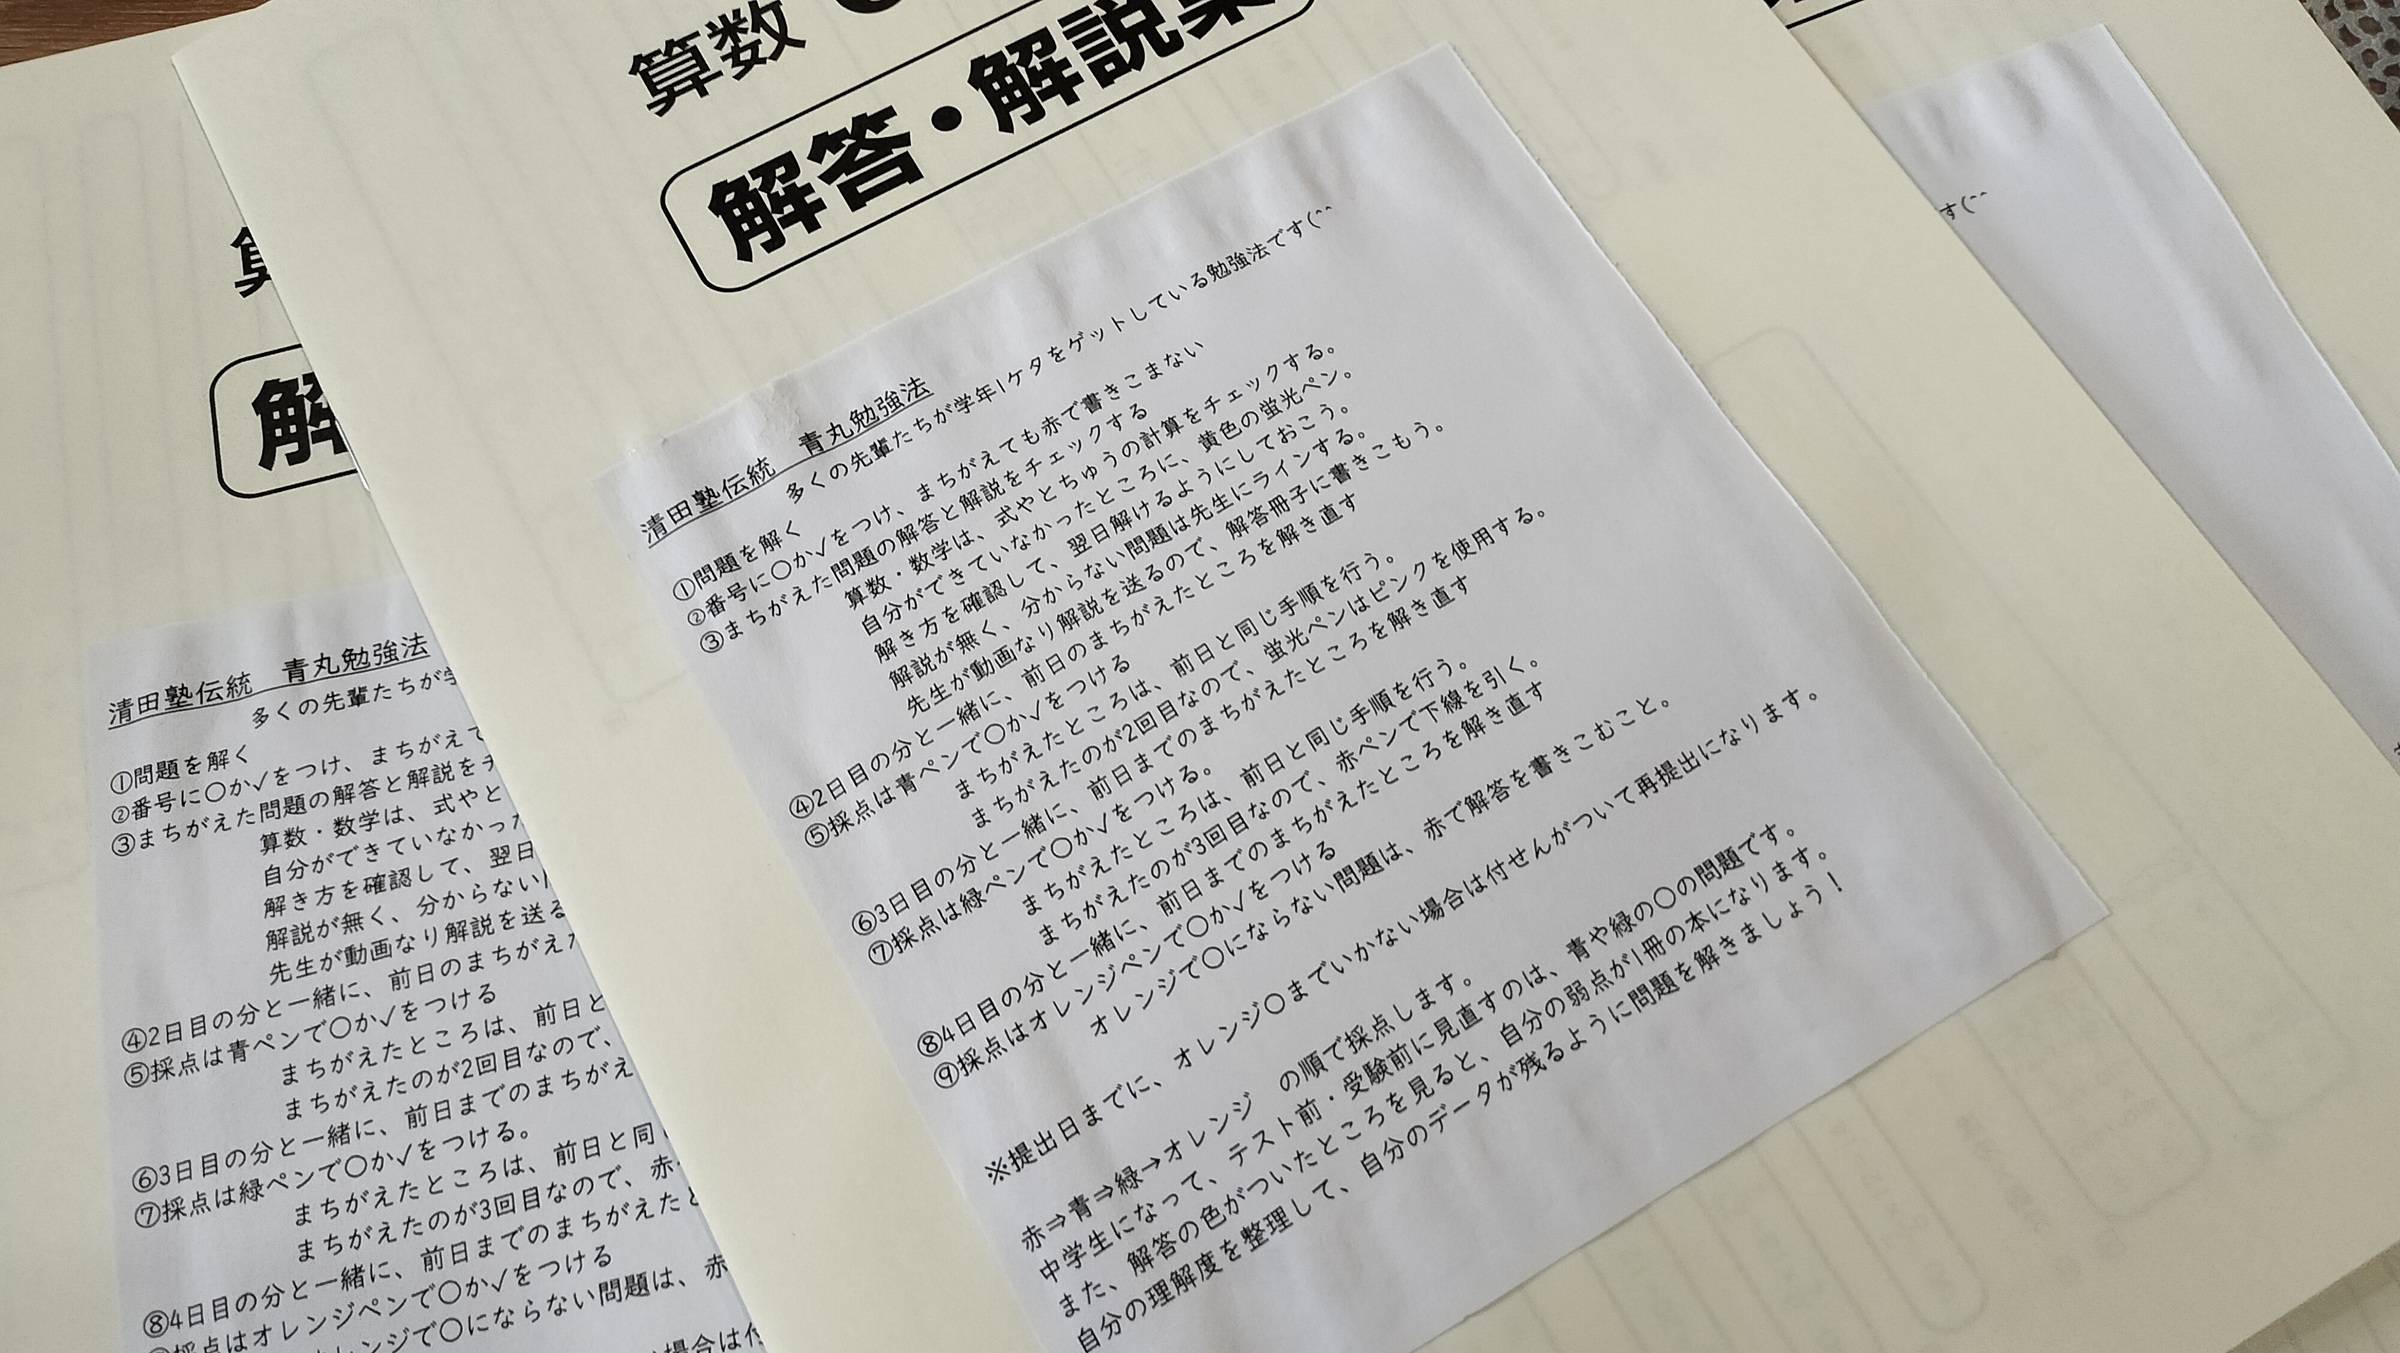 算数
解答・解説集
清田塾伝統　青丸勉強法
多くの先輩たちが学年1ケタをゲットしている勉強法です(^^
①問題を解く
②番号に〇か✓をつけ、まちがえても赤で書きこまない
③まちがえた問題の解答と解説をチェックする
算数・数学は、式やとちゅうの計算をチェックする。
自分ができていなかったところに、黄色の蛍光ペン。
解き方を確認して、翌日解けるようにしておこう。
解説が無く、分からない問題は先生にラインする。
先生が動画なり解説を送るので、解答冊子に書きこもう。
④2日目の分と一緒に、前日のまちがえたところを解き直す
⑤採点は青ペンで〇か✓をつける
まちがえたところは、前日と同じ手順を行う。
まちがえたのが2回目なので、蛍光ペンはピンクを使用する。
⑥3日目の分と一緒に、前日までのまちがえたところを解き直す
⑦採点は緑ペンで〇か✓をつける。
まちがえたところは、前日と同じ手順を行う。
まちがえたのが3回目なので、赤ペンで下線を引く。
⑧4日目の分と一緒に、前日までのまちがえたところを解き直す
⑨採点はオレンジペンで〇か✓をつける
オレンジで〇にならない問題は、赤で解答を書きこむこと。
※提出日までに、オレンジ〇までいかない場合は付せんがついて再提出になります。
赤⇒青⇒緑→オレンジ　の順で採点します。
中学生になって、テスト前・受験前に見直すのは、青や緑の〇の問題です。
また、解答の色がついたところを見ると、自分の弱点が1冊の本になります。
自分の理解度を整理して、自分のデータが残るように問題を解きましょう！
算
解
清田塾伝統　青丸勉強法
多くの先輩たちが学
①問題を解く
②番号に〇か✓をつけ、まちがえて
③まちがえた問題の解答と解説をチ
算数・数学は、式やと
自分ができていなかった
解き方を確認して、翌日
解説が無く、分からない
先生が動画なり解説を送る
④2日目の分と一緒に、前日のまちがえた
⑤採点は青ペンで〇か✓をつける
まちがえたところは、前日と
まちがえたのが2回目なので、
⑥3日目の分と一緒に、前日までのまちがえ
⑦採点は緑ペンで〇か✓をつける。
まちがえたところは、前日と同
まちがえたのが3回目なので、赤
⑧4日目の分と一緒に、前日までのまちがえたと
採点はオレンジペンで〇か✓をつける
ンジで〇にならない問題は、赤
場合は付
す(^^